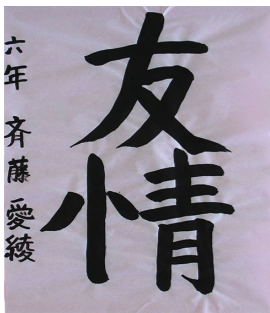 友情
六年 斉藤愛綾